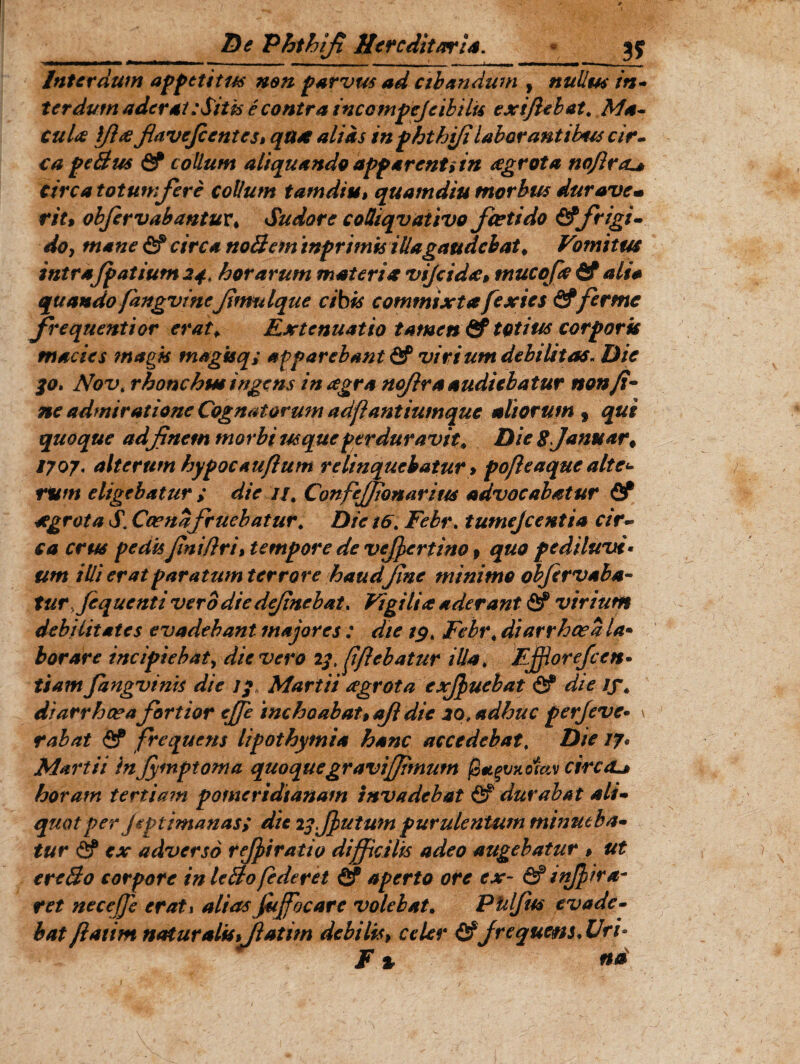 De Phthisi Hereditaria. 35
Interdum appetitus non parvus ad cibandum, nullus in-
terdum aderat: Sitis è contra incompescibilis existebat. Ma-
culæ istæ flavescentes, quæ aliàs in phthisi laborantibus cir-
ca pectus & collum aliquando apparent, in ægrota nostra
circa totum ferè collum tamdiu, quamdiu morbus durave-
rit, observabantur. Sudore colliqvativo fœtido & frigi-
do, mane & circa noctem inprimis illa gaudebat. Vomitus
intra spatium 24. horarum materiæ viscidæ, mucosæ & ali-
quando sangvine simulque cibis commixtæ sexies & ferme
frequentior erat. Extenuatio tamen & totius corporis
macies magis magisq; apparebant & virium debilitas. Die
30. Nov. rhonchus ingens in ægra nostra audiebatur non si-
ne admiratione Cognatorum adstantiumque aliorum, qui
quoque ad finem morbi usque perduravit. Die 8. Januar.
1707. alterum hypocaustum relinquebatur, posteaque alte-
rum eligebatur; die 11. Confessionarius advocabatur &
ægrota S. Cœnâ fruebatur. Die 16. Febr. tumescentia cir-
ca crus pedis sinistri, tempore de vespertino, quo pediluvi-
um illi erat paratum terrore haud sine minimo observaba-
tur, sequenti verò die desinebat. Vigiliæ aderant & virium
debilitates evadebant majores: die 19. Febr. diarrhœâ la-
borare incipiebat, die vero 23. sistebatur illa. Efflorescen-
tiam sangvinis die 13. Martii ægrota exspuebat & die 15.
diarrhœa fortior esse inchoabat, ast die 20. adhuc perseve-
rabat & frequens lipothymia hanc accedebat. Die 17.
Martii in symptoma quoque gravissimum βαρυκοΐαν circa
horam tertiam pomeridianam invadebat & durabat ali-
quot per septimanas; die 23 sputum purulentum minueba-
tur & ex adversò respiratio difficilis adeo augebatur, ut
erecto corpore in lecto sederet & aperto ore ex- & inspira-
ret necesse erat, alias suffocare volebat. Pulsus evade-
bat statim naturalis, statim debilis, celer & frequens. Uri-
F 2 na